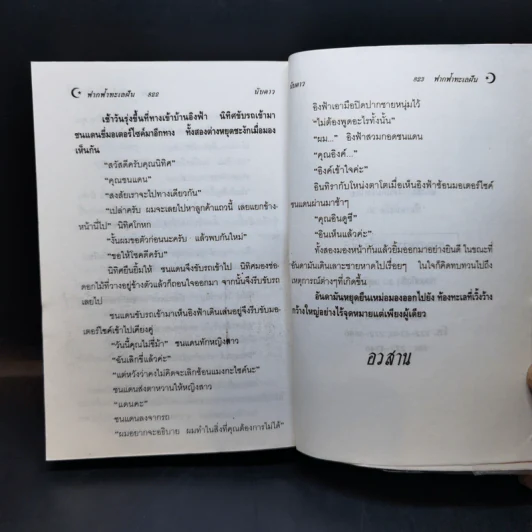 ฟากฟ้าทะเลฝัน ๓๒๒
เช้าวันรุ่งขึ้นที่ทางเข้าบ้านอิงฟ้า นิทิศขับรถเข้ามา
ชนแดนขี่มอเตอร์ไซค์มาอีกทาง ทั้งสองต่างหยุดชะงักเมื่อมอง
เห็นกัน
“สวัสดีครับคุณนิทิศ”
“คุณชนแดน”
“สงสัยเราจะไปทางเดียวกัน”
“เปล่าครับ ผมจะเลยไปหาลูกค้าแถวนี้ เลยแยกข้าง
หน้านี้ไป” นิทิศโกหก
“งั้นผมขอตัวก่อนนะครับ แล้วพบกันใหม่”
“ขอให้โชคดีครับ”
นิทิศยืนยิ้มให้ ชนแดนจึงขับรถเข้าไป นิทิศมองช่อ
ดอกไม้ที่วางอยู่ข้างตัวแล้วก็ถอนใจออกมา จากนั้นจึงรีบขับรถ
เลยไป
ชนแดนขับรถเข้ามาเห็นอิงฟ้าเดินเล่นอยู่จึงรีบขับมอ
เตอร์ไซค์เข้าไปเคียงคู่
“วันนี้คุณไม่ขี่ม้า” ชนแดนทักหญิงสาว
“ฉันเลิกขี่แล้วค่ะ”
“แต่หวังว่าคงไม่คิดจะเลิกซ้อนแมงกะไซค์นะ”
ชนแดนส่งตาหวานให้หญิงสาว
“แดนคะ”
ชนแดนลงจากรถ
“ผมอยากจะอธิบาย ผมทำในสิ่งที่คุณต้องการไม่ได้”
นับดาว ๓๒๓ ฟากฟ้าทะเลฝัน
อิงฟ้าเอามือปิดปากชายหนุ่มไว้
“ไม่ต้องพูดอะไรทั้งนั้น”
“ผม...” อิงฟ้าสวมกอดชนแดน
“คุณอิงค์...”
“อิงค์เข้าใจค่ะ”
อินทิรากับโหน่งตาโตเมื่อเห็นอิงฟ้าซ้อนมอเตอร์ไซค์
ชนแดนผ่านมาช้าๆ
“คุณอินดูซี”
“อินเห็นแล้วค่ะ”
ทั้งสองมองหน้ากันแล้วยิ้มออกมาอย่างยินดี ในขณะที่
อันดามันเดินเลาะชายหาดไปเรื่อยๆ ในใจก็คิดทบทวนไปถึง
เหตุการณ์ต่างๆที่เกิดขึ้น
อันดามันหยุดยืนเหม่อมองออกไปยัง ท้องทะเลที่เวิ้งว้าง
กว้างใหญ่อย่างไร้จุดหมายแต่เพียงผู้เดียว
อวสาน